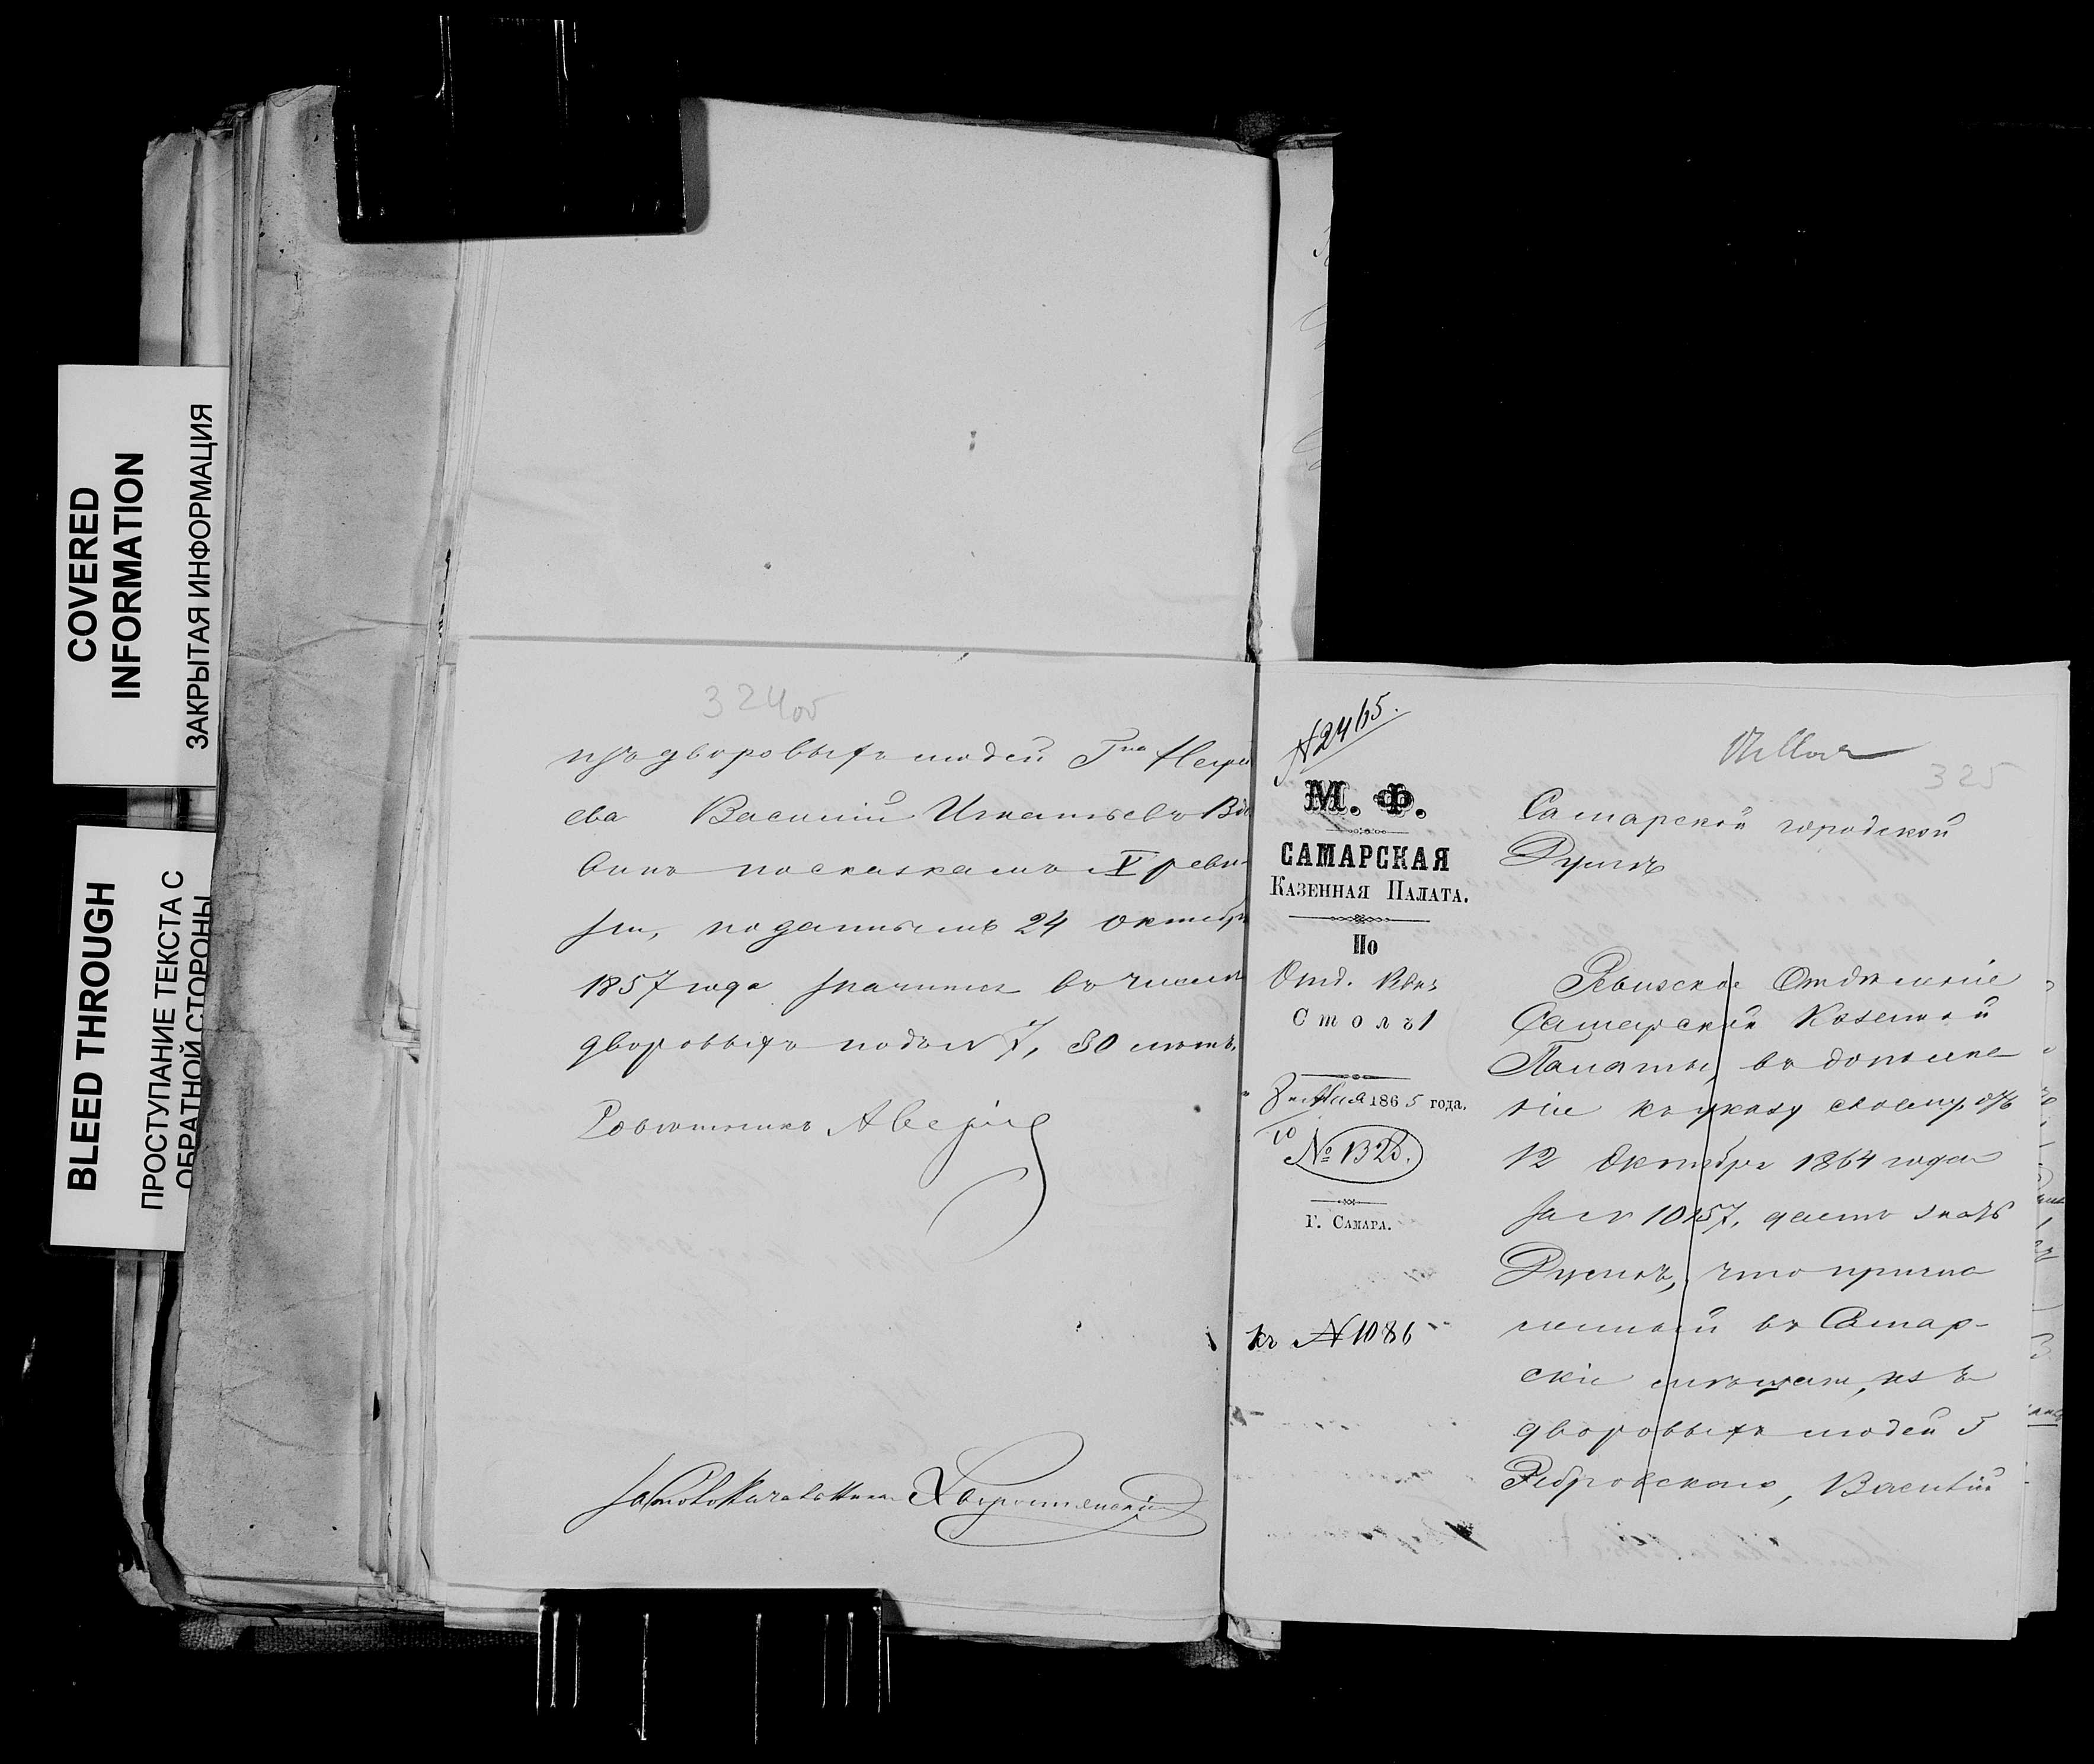 COVERED
INFORMATION
ЗАКРЫТАЯ ИНФОРМАЦИЯ
BLEED THROUGH
ПРОСТУПАНИЕ ТЕКСТА С
ОБРАТНОЙ СТОРОНЫ
324 об
изъ дворовыхъ людей Гна
ева Василій Игнатьевъ
по сказкамъ X реви-
зіи, поданнымъ 24 октября
1857 года значится въ числе
дворовыхъ подъ № 7, 30 летъ.
Советникъ
За
№ 2465.
М. Ф.
САМАРСКАЯ
КАЗЕННАЯ ПАЛАТА.
По
Отд. Рвиз
Столъ 1
8 Мая 1865 года.
10
№ 1325.
Г. САМАРА.
къ № 1086
325
Самарской городской
Думѣ
Ревизское Отдѣленіе
Самарской Казенной
Палаты, въ дополне
ніе къ указу своему отъ
12 Октября 1864 года
за № 10157, даетъ знать
Думѣ, что причис
ленный въ Самар-
скіе мѣщане, изъ
дворовыхъ людей Г
Ребровскаго, Василій